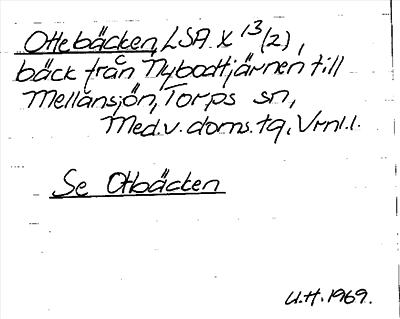 Ottebäcken, LSA X 13/(2),
bäck från Nybodtjärnen till
Mellansjön, Torps sn,
Med.v. doms. tg, Vrnl.l.
Se Otbäcken
U.H. 1969.